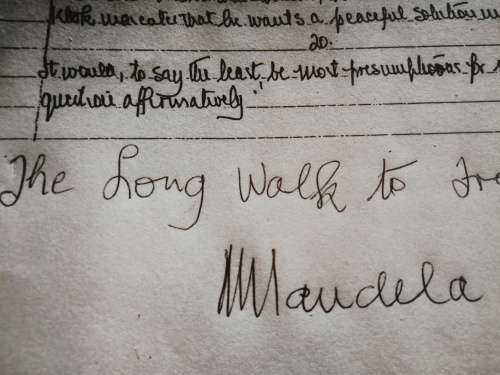 that he wants a peaceful solution
20.
It would, to say the least be most presumptuous for
question affirmatively."
The Long Walk to Fre
NMandela